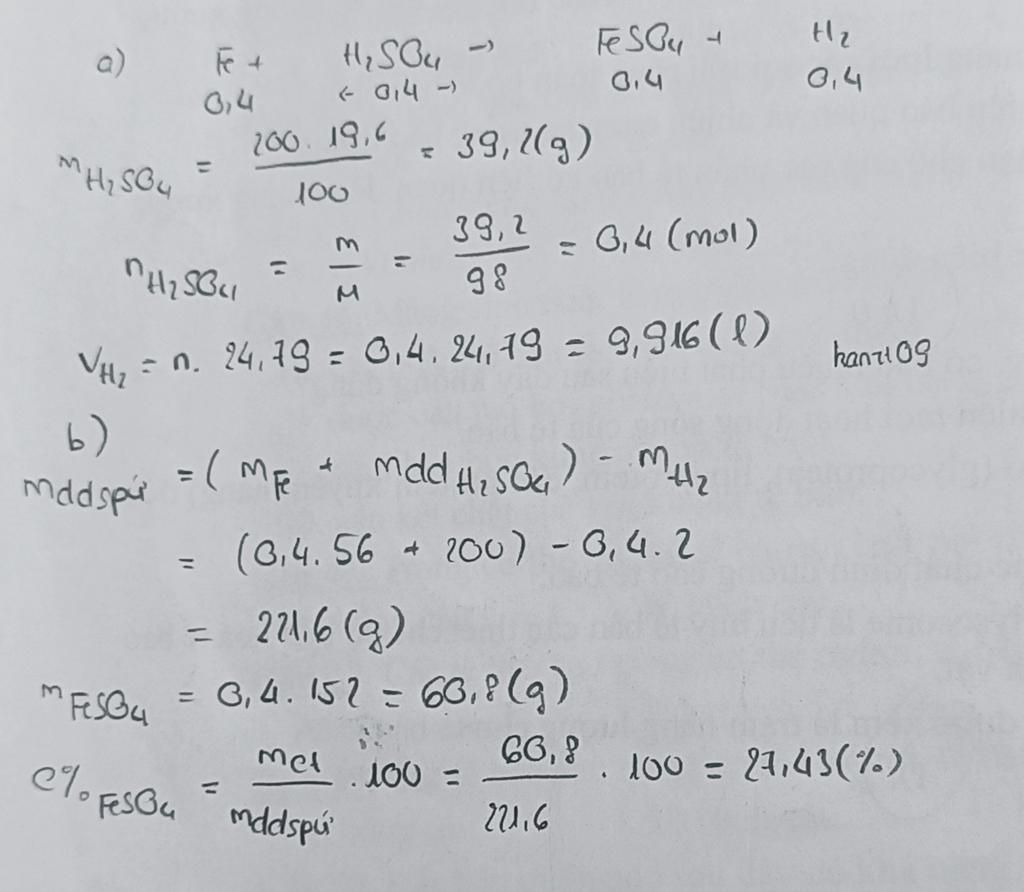 a) Fe + H₂SO₄ → FeSO₄ + H₂
0,4 ← 0,4 → 0,4 0,4
mH₂SO₄ = 200. 19,6 / 100 = 39,2(g)
nH₂SO₄ = m / M = 39,2 / 98 = 0,4 (mol)
VH₂ = n. 24,79 = 0,4. 24,79 = 9,916 (l)
b)
mddspứ = ( mFe + mdd H₂SO₄ ) - mH₂
= (0,4. 56 + 200) - 0,4. 2
= 221,6 (g)
mFeSO₄ = 0,4. 152 = 60,8 (g)
C% FeSO₄ = mct / mddspứ . 100 = 60,8 / 221,6 . 100 = 27,43 (%)